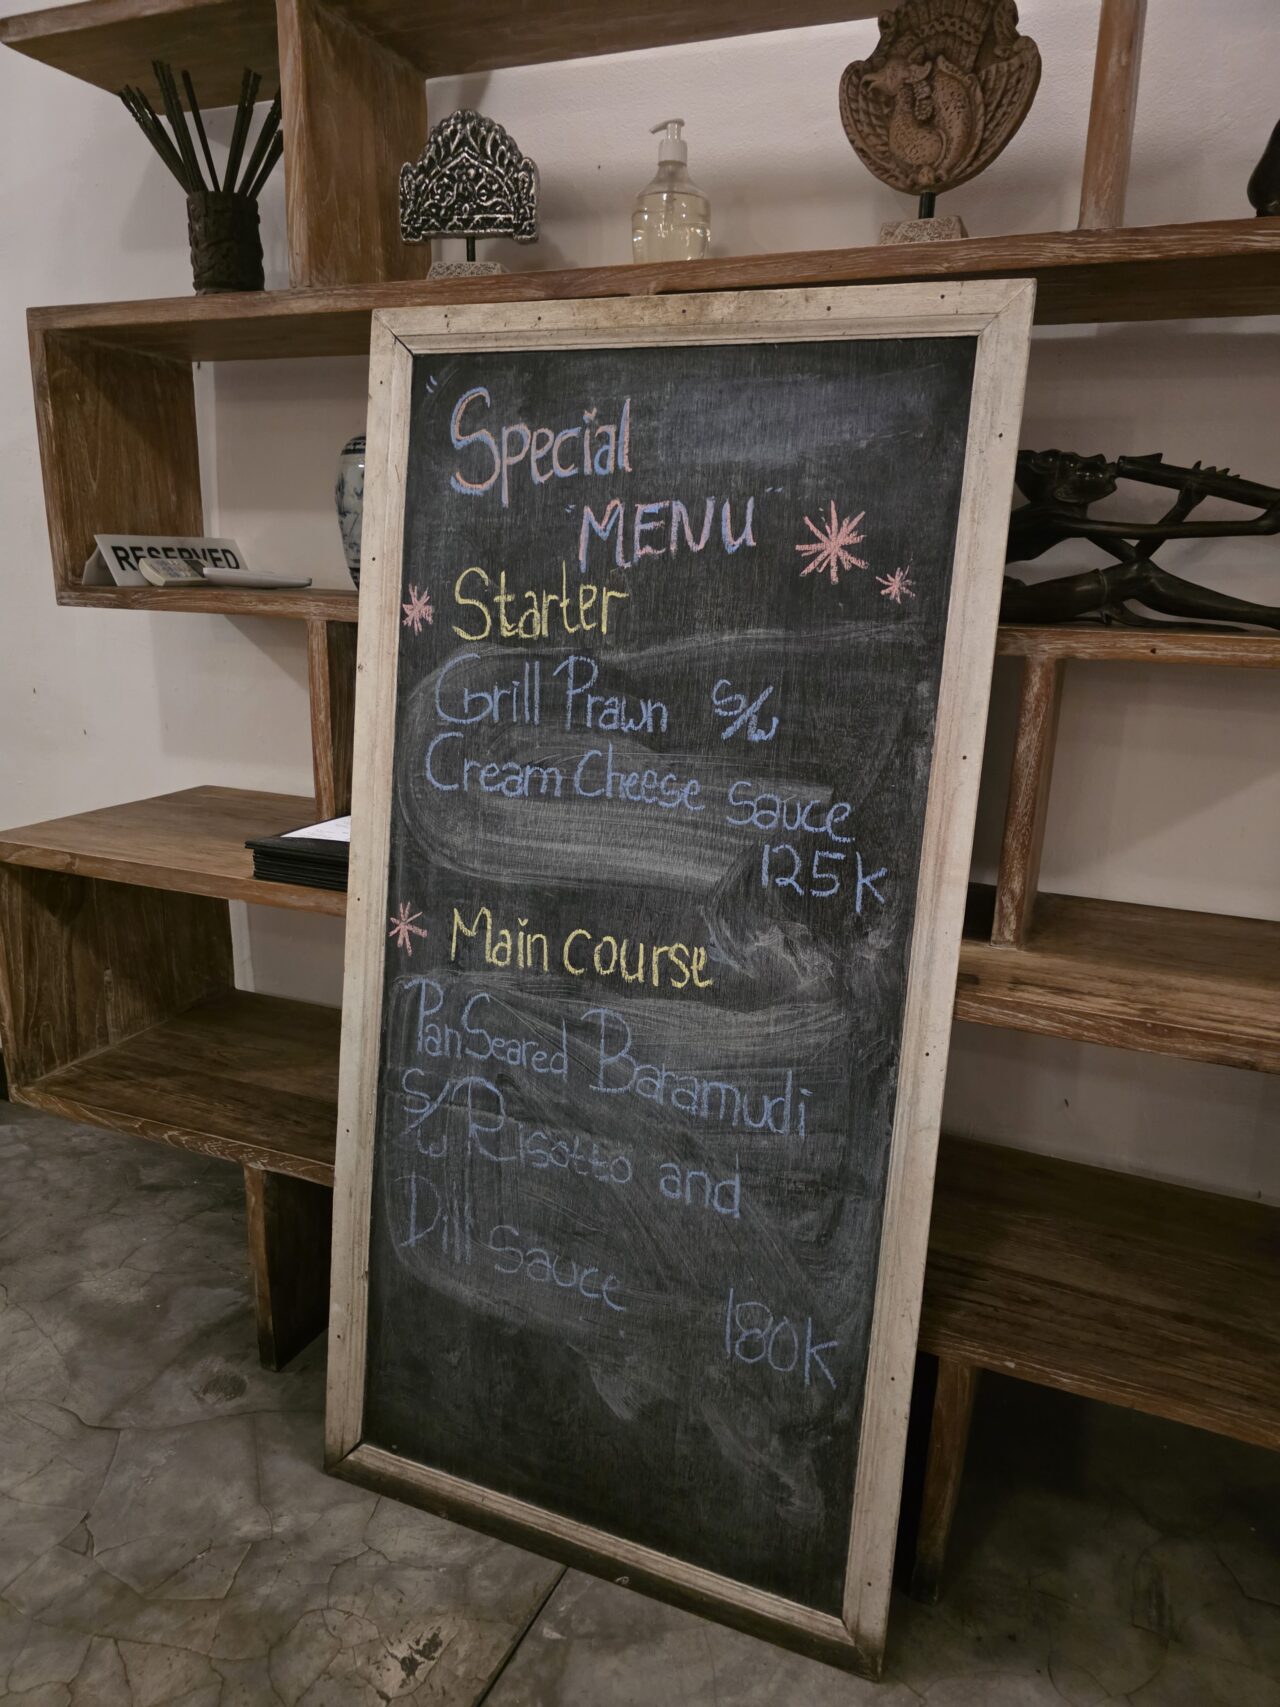 "Special
"MENU"
Starter
Grill Prawn s/w
Cream Cheese sauce
125k
Main course
Pan Seared Baramudi
s/w Risotto and
Dill sauce
180k
RESERVED